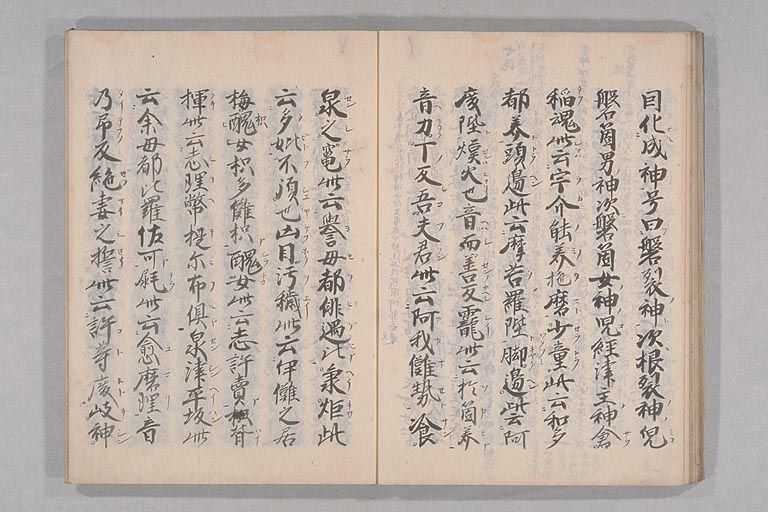 目化成神号曰磐裂神次根裂神児
磐筒男神次磐筒女神児経津主神倉
稲魂此云宇介能美拕磨少童此云和多
都美頭邊此云摩苔羅陛脚邊此云阿
度陛熯火也音而善反龗此云於箇美
音力丁反吾夫君此云阿我儺勢飡
泉之竈此云誉母都俳遇比秉炬此
云多妣不須也凶目汚穢此云伊儺之居
梅枳醜女枳多儺枳醜女此云志許賣背
揮此云志理幣提尓布倶泉津平坂此
云余母都比羅佐可屎此云愈磨理音
乃弔反絶妻之誓此云許等度岐神